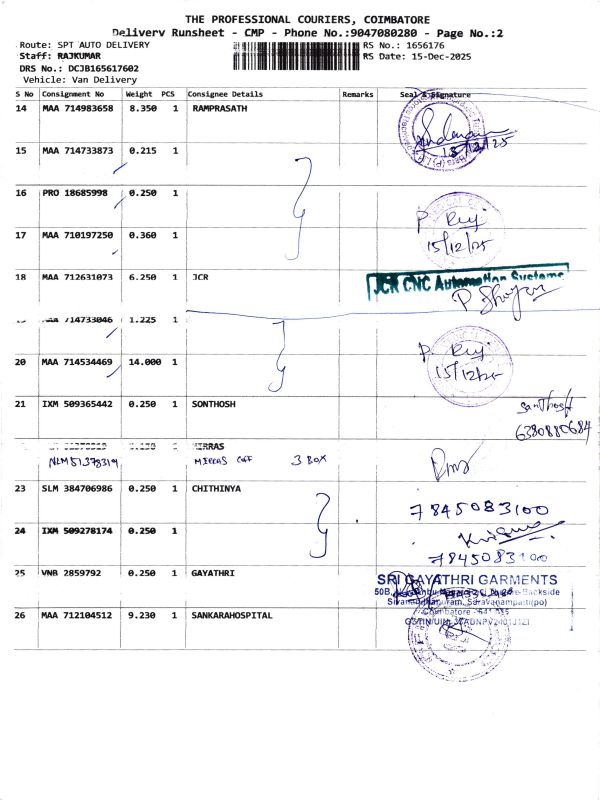 THE PROFESSIONAL COURIERS, COIMBATORE
Delivery Runsheet - CMP - Phone No.:9047080280 - Page No.:2
Route: SPT AUTO DELIVERY RS No.: 1656176
Staff: RAJKUMAR RS Date: 15-Dec-2025
DRS No.: DCJB165617602
Vehicle: Van Delivery
S No Consignment No Weight PCS Consignee Details Remarks Seal & Signature
14 MAA 714983658 8.350 1 RAMPRASATH
15/12/25
15 MAA 714733873 0.215 1
16 PRO 18685998 0.250 1
P.
15/12/25
17 MAA 710197250 0.360 1
18 MAA 712631073 6.250 1 JCR
JCR CNC Automation Systems
P
19 MAA 714733046 1.225 1
20 MAA 714534469 14.000 1
P.
15/12/25
21 IXM 509365442 0.250 1 SONTHOSH
Santhosh
6380880684
MERRAS
NLM 51378319 3 BOX
23 SLM 384706986 0.250 1 CHITHINYA
7845083100
24 IXM 509278174 0.250 1
7845083100
25 VNB 2859792 0.250 1 GAYATHRI
SRI GAYATHRI GARMENTS
Backside
Saravanampatti(po)
Coimbatore
26 MAA 712104512 9.230 1 SANKARAHOSPITAL